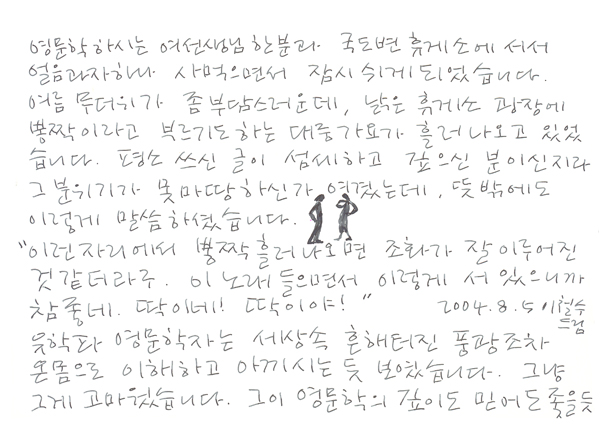 영문학 하시는 여선생님 한분과 국도변 휴게소에 서서
얼음과자하나 사먹으면서 잠시 쉬게되었습니다.
여름 무더위가 좀 부담스러운데, 낡은 휴게소 광장에
뽕짝이라고 부르기도하는 대중가요가 흘러나오고 있었
습니다. 평소 쓰신 글이 섬세하고 깊으신 분이신지라
그 분위기가 못마땅하신가 여겼는데, 뜻밖에도
이렇게 말씀하셨습니다.
"이런자리에서 뽕짝 흘러나오면 조화가 잘이루어진
것 같더라구. 이 노래 들으면서 이렇게 서 있으니까
참좋네. 딱이네! 딱이야!"
2004.8.5 이철수
드림
웃학파 영문학자는 세상속 흔해터진 풍광조차
온몸으로 이해하고 아끼시는 듯 보였습니다. 그냥
그게 고마웠습니다. 그이 영문학의 깊이도 믿어도좋을듯